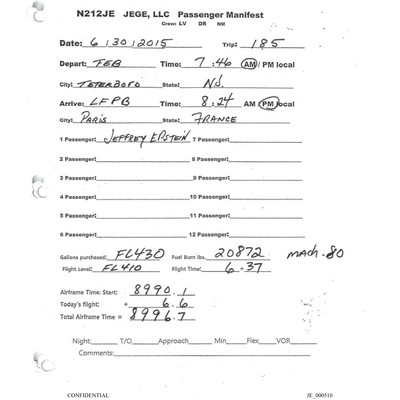 N212JE JEGE, LLC Passenger Manifest
Crew: LV DR NM
Date: 6/30/2015 Trip: 185
Depart: TEB Time: 7:46 AM/PM local
City: TETERBORO State: NJ.
Arrive: LFPB Time: 8:24 AM/PM local
City: PARIS State: FRANCE
1 Passenger: JEFFREY EPSTEIN 7 Passenger:
2 Passenger: 8 Passenger:
3 Passenger: 9 Passenger:
4 Passenger: 10 Passenger:
5 Passenger: 11 Passenger:
6 Passenger: 12 Passenger:
Gallons purchased: FL430 Fuel Burn lbs. 20872 MACH .80
Flight Level: FL410 Flight Time: 6+37
Airframe Time: Start: 8990.1
Today's flight: + 6.6
Total Airframe Time = 8996.7
Night: T/O Approach Min Flex VOR
Comments:
CONFIDENTIAL JE_000510